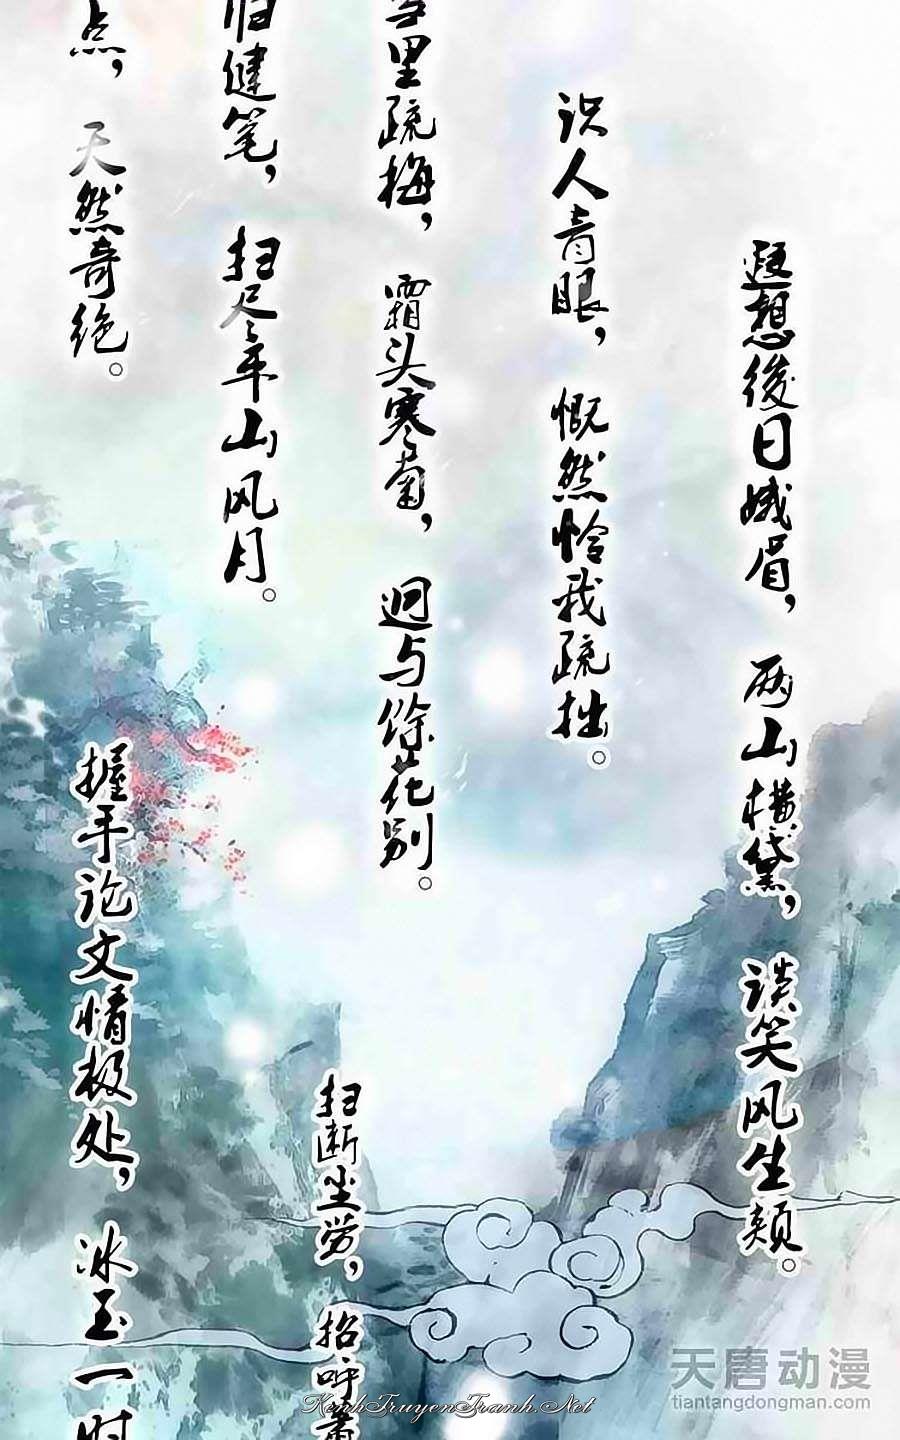 遐想後日娥眉，两山横黛，谈笑风生颊。
识人青眼，慨然怜我疏拙。
雪里疏梅，霜头寒菊，迥与馀花别。
扫断尘劳，招呼萧
归健笔，扫尽平山风月。
点，天然奇绝。
握手论文情极处，冰玉一时
天唐动漫
tiantangdongman.com
KenhTruyenTranh.Net